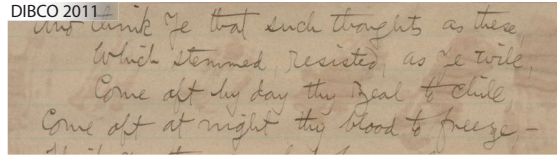 DIBCO 2011
And think Ye that such thoughts as these,
Which stemmed, resisted, as Ye will,
Come oft by day thy Zeal to chill,
Come oft at night thy blood to freeze –